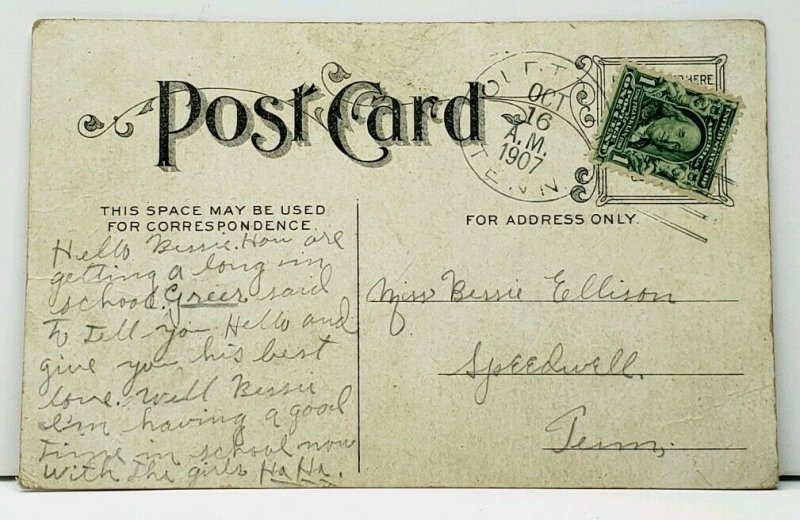 Post Card
OCT
16
A.M.
1907
TENN.
HERE
THIS SPACE MAY BE USED
FOR CORRESPONDENCE.
FOR ADDRESS ONLY.
Hello Bessie. How are
getting a long in
school. Greer said
to tell you Hello and
give you his best
love. Well Bessie
I'm having a good
time in school now
with the girls Ha Ha.
Miss Bessie Ellison
Speedwell,
Tenn,